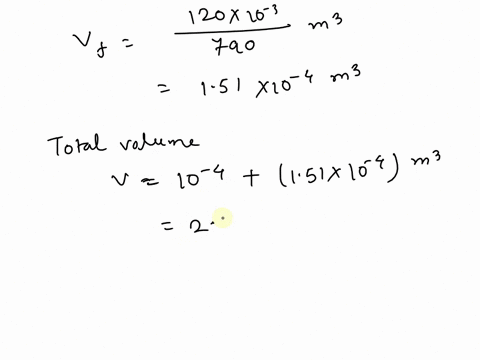 V_f = 120 × 10⁻³ / 790 m³
= 1.51 × 10⁻⁴ m³
Total volume
V = 10⁻⁴ + (1.51 × 10⁻⁴) m³
= 2.